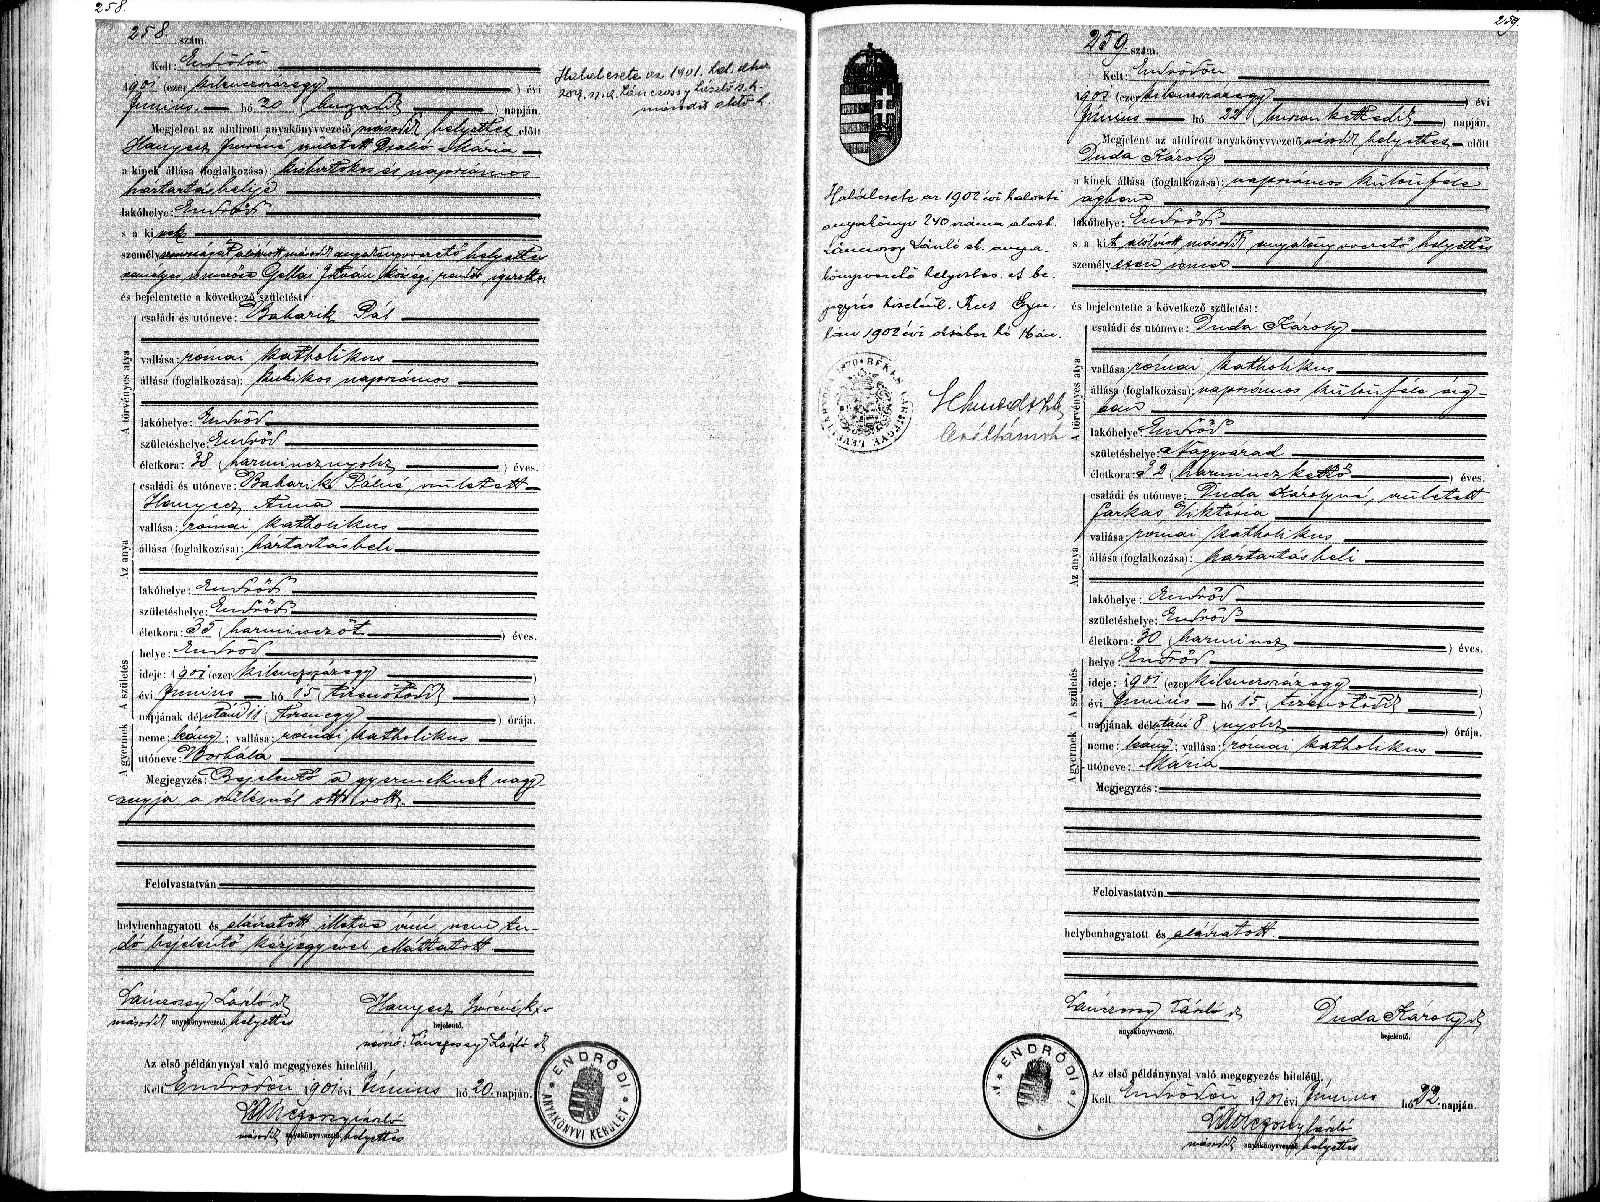 258.
258 szám.
Kelt: Endrődön
1901 (ezer kilenczszázegy) évi
Junius hó 20 (huszadik) napján.
Megjelent az alulirott anyakönyvvezető második helyettes előtt
Hanyecz született Maria
a kinek állása (foglalkozása): kisbirtokos és napszámos
háztartásbelije
lakóhelye: Endrőd
s a ki nek
személy alólirott második anyakönyvvezető helyettes
személyes Gellai István községi rendőr
és bejelentette a következő születést:
A törvényes atya
családi és utóneve: Babarik Pál
vallása: római katholikus
állása (foglalkozása): kubikos napszámos
lakóhelye: Endrőd
születéshelye: Endrőd
életkora: 38 (harmincznyolcz) éves.
Az anya
családi és utóneve: Babarik Pálné, született
Hanyecz Anna
vallása: római katholikus
állása (foglalkozása): háztartásbeli
lakóhelye: Endrőd
születéshelye: Endrőd
életkora: 35 (harminczöt) éves.
A születés
helye: Endrőd
ideje: 1901 (ezer kilenczszázegy)
évi Junius hó 15 (tizenötödik)
napjának délutáni 11 (tizenegy) órája.
A gyermek
neme: leány; vallása: római katholikus
utóneve: Borbála
Megjegyzés: Bejelentő a gyermeknek nagy
anyja a szülésnél ott volt.
Felolvastatván
helybenhagyatott és aláiratott illetve irni nem tu-
dó bejelentő kézjegyével elláttatott
Lánczossy László sk
második anyakönyvvezető. helyettes
Hanyecz
bejelentő.
Lánczossy László sk
Az első példánynyal való megegyezés hiteléül.
Kelt Endrődön 1901 évi Junius hó 20. napján.
Lánczossy László
második anyakönyvvezető helyettes
ENDRŐDI
ANYAKÖNYVI KERÜLET
Halálesete az 1901. hal. akvi
204. sz. a. Lánczossy László s. k.
második
259.
259 szám.
Kelt: Endrődön
1901 (ezer kilenczszázegy) évi
Junius hó 22 (huszonkettedik) napján.
Megjelent az alulirott anyakönyvvezető második helyettes előtt
Duda Károly
a kinek állása (foglalkozása): napszámos különféle
ágban
lakóhelye: Endrőd
s a ki t alólirott második anyakönyvvezető helyettes
személyesen ismer
és bejelentette a következő születést:
A törvényes atya
családi és utóneve: Duda Károly
vallása: római katholikus
állása (foglalkozása): napszámos különféle ág-
ban
lakóhelye: Endrőd
születéshelye: Nagyvárad
életkora: 32 (harminczkettő) éves.
Az anya
családi és utóneve: Duda Károlyné, született
Farkas Viktória
vallása: római katholikus
állása (foglalkozása): háztartásbeli
lakóhelye: Endrőd
születéshelye: Endrőd
életkora: 30 (harmincz) éves.
A születés
helye: Endrőd
ideje: 1901 (ezer kilenczszázegy)
évi Junius hó 15. (tizenötödik)
napjának délutáni 8 (nyolcz) órája.
A gyermek
neme: leány; vallása: római katholikus
utóneve: Mária
Megjegyzés:
Felolvastatván
helybenhagyatott és aláiratott
Lánczossy László sk
anyakönyvvezető.
Duda Károly sk
bejelentő.
Az első példánynyal való megegyezés hiteléül.
Kelt Endrődön 1901 évi Junius hó 22. napján.
Lánczossy László
második anyakönyvvezető helyettes
ENDRŐDI
Halálesete az 1902 évi halotti
anyakönyv 240 száma alatt.
Lánczossy László sk. anya-
könyvvezető helyettes. A be-
jegyzés hiteléül. Kelt Gyu-
lán 1902 évi október hó 16án.
levéltárnok
BÉKÉS VÁRMEGYE LEVÉLTÁRA